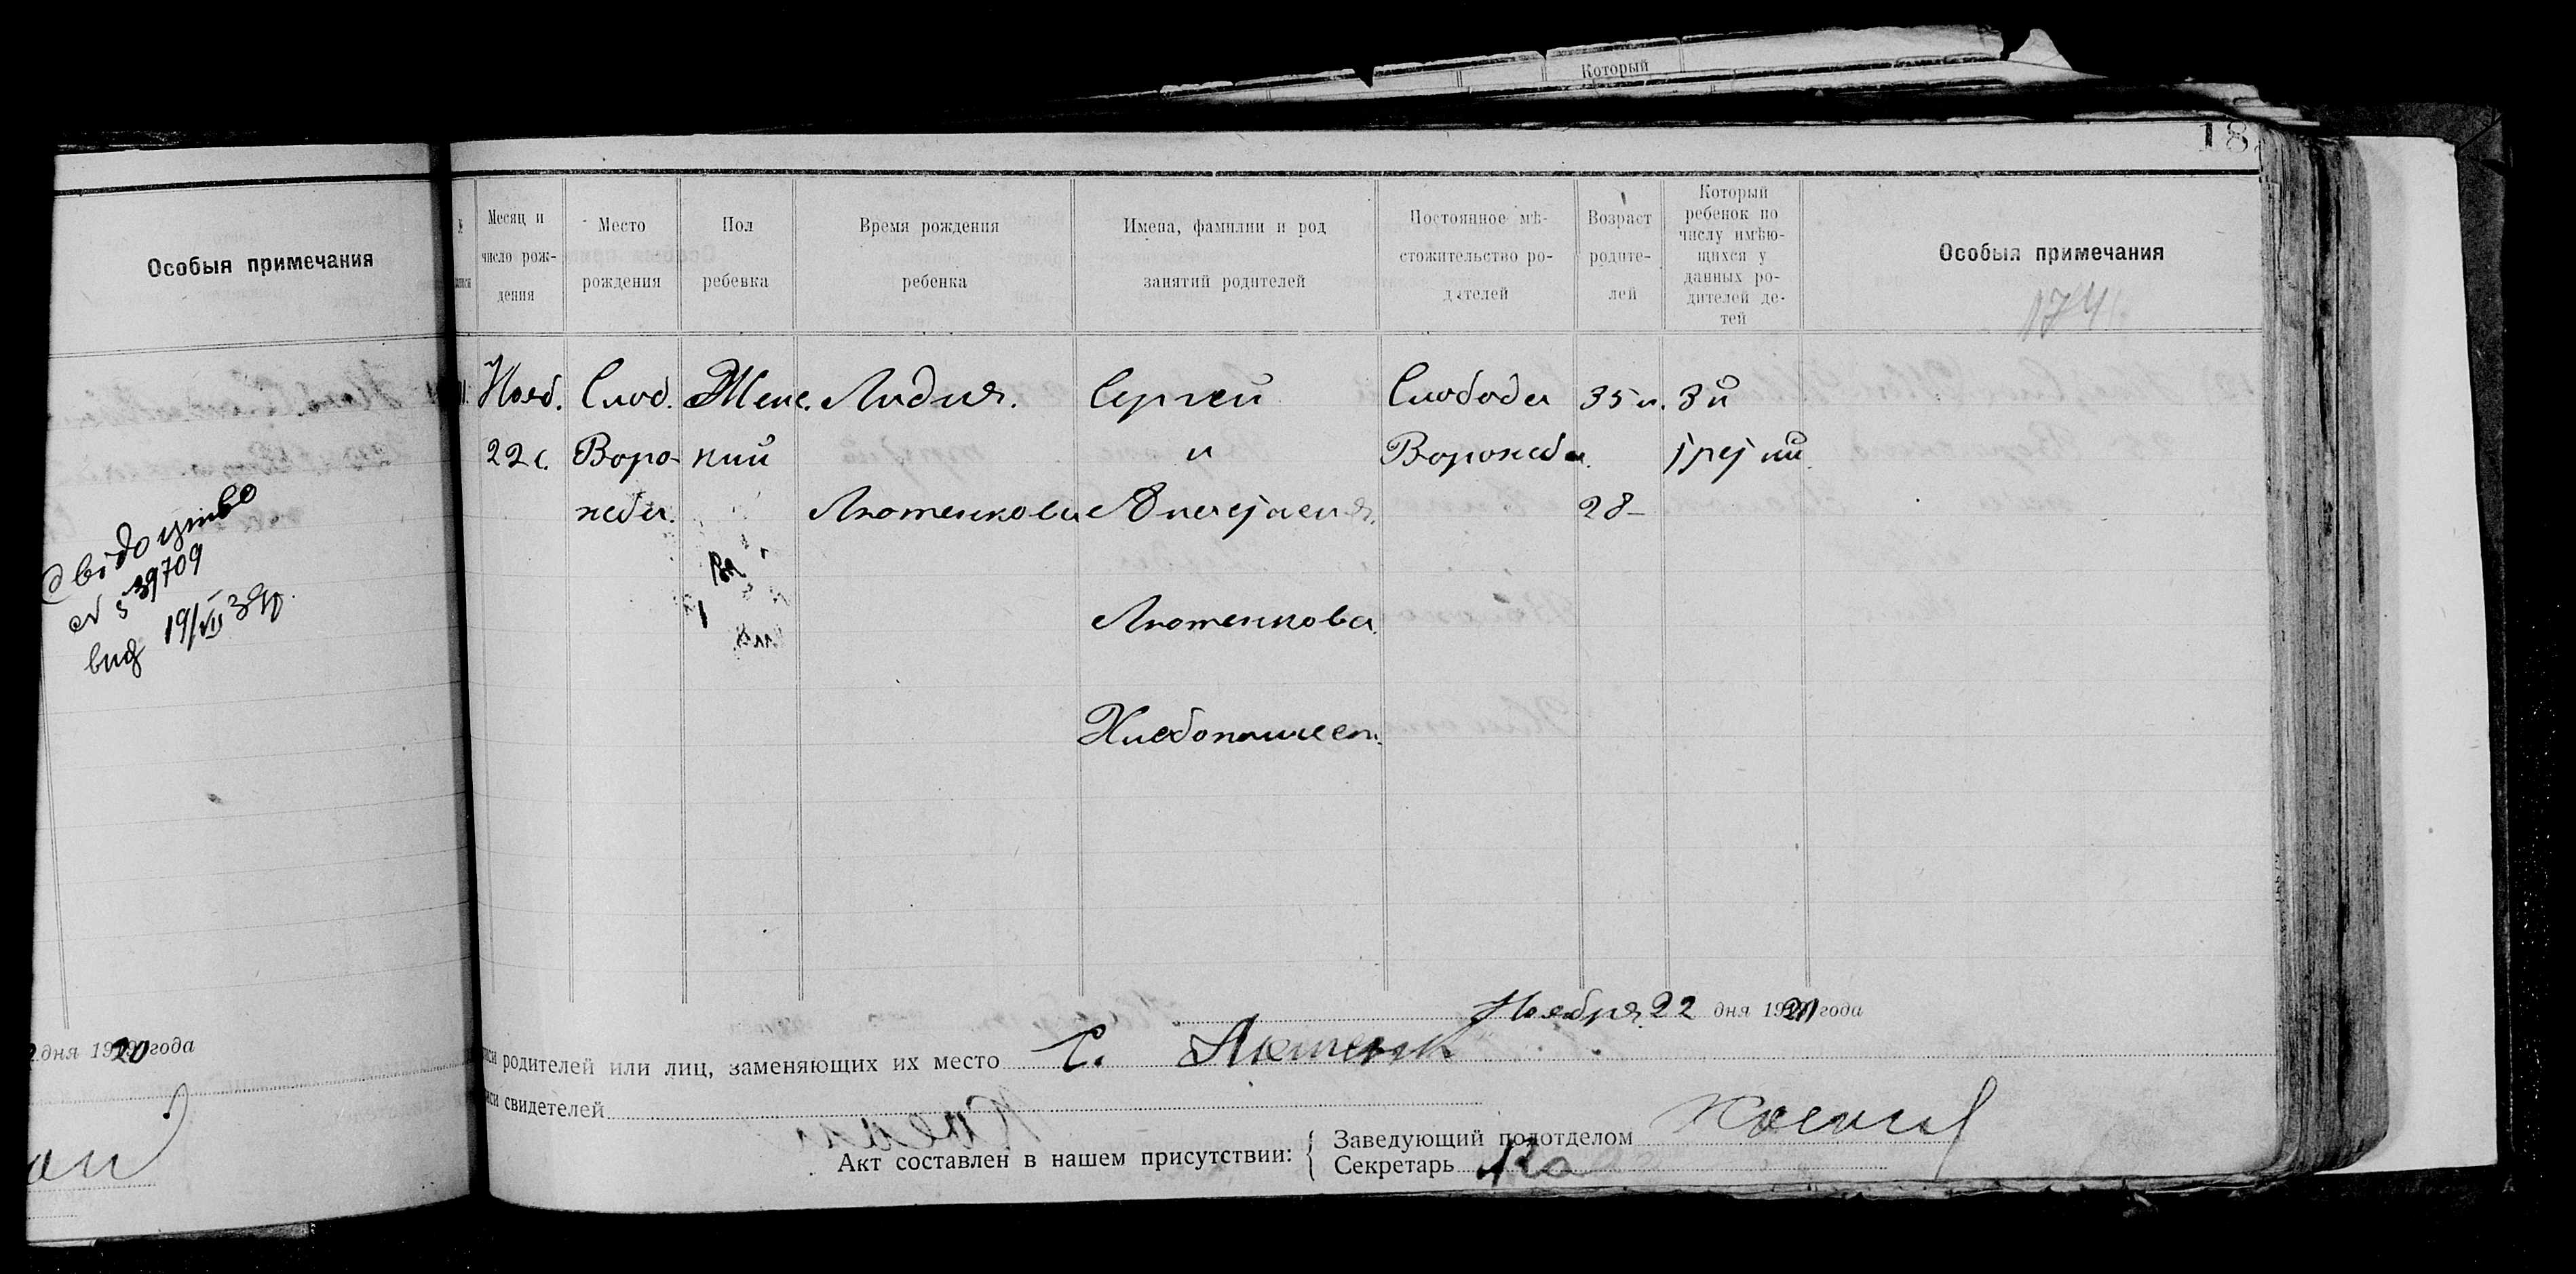 Который
18
Особыя примечания
Свідоцтво
№ 39709
вид 19/VII 39р.
дня 1920 года
Месяц и
число рож-
дения
Место
рождения
Пол
ребенка
Время рождения
ребенка
Имена, фамилии и род
занятий родителей
Постоянное мѣ-
стожительство ро-
дителей
Возраст
родите-
лей
Который
ребенок по
числу имѣю-
щихся у
данных ро-
дителей де-
тей
Особыя примечания
174
Нояб.
22 с.
Слоб.
Воро-
неба.
Женс.
кий
Лидия.
Лютенкова
Сергей
и
Анастасия.
Лютенкова.
Хлебопашест.
Слобода
Воронеба.
35 л.
28
3й
третий.
Ноября 22 дня 1920 года
родителей или лиц, заменяющих их место С.
свидетелей
Акт составлен в нашем присутствии:
Заведующий подотделом
Секретарь